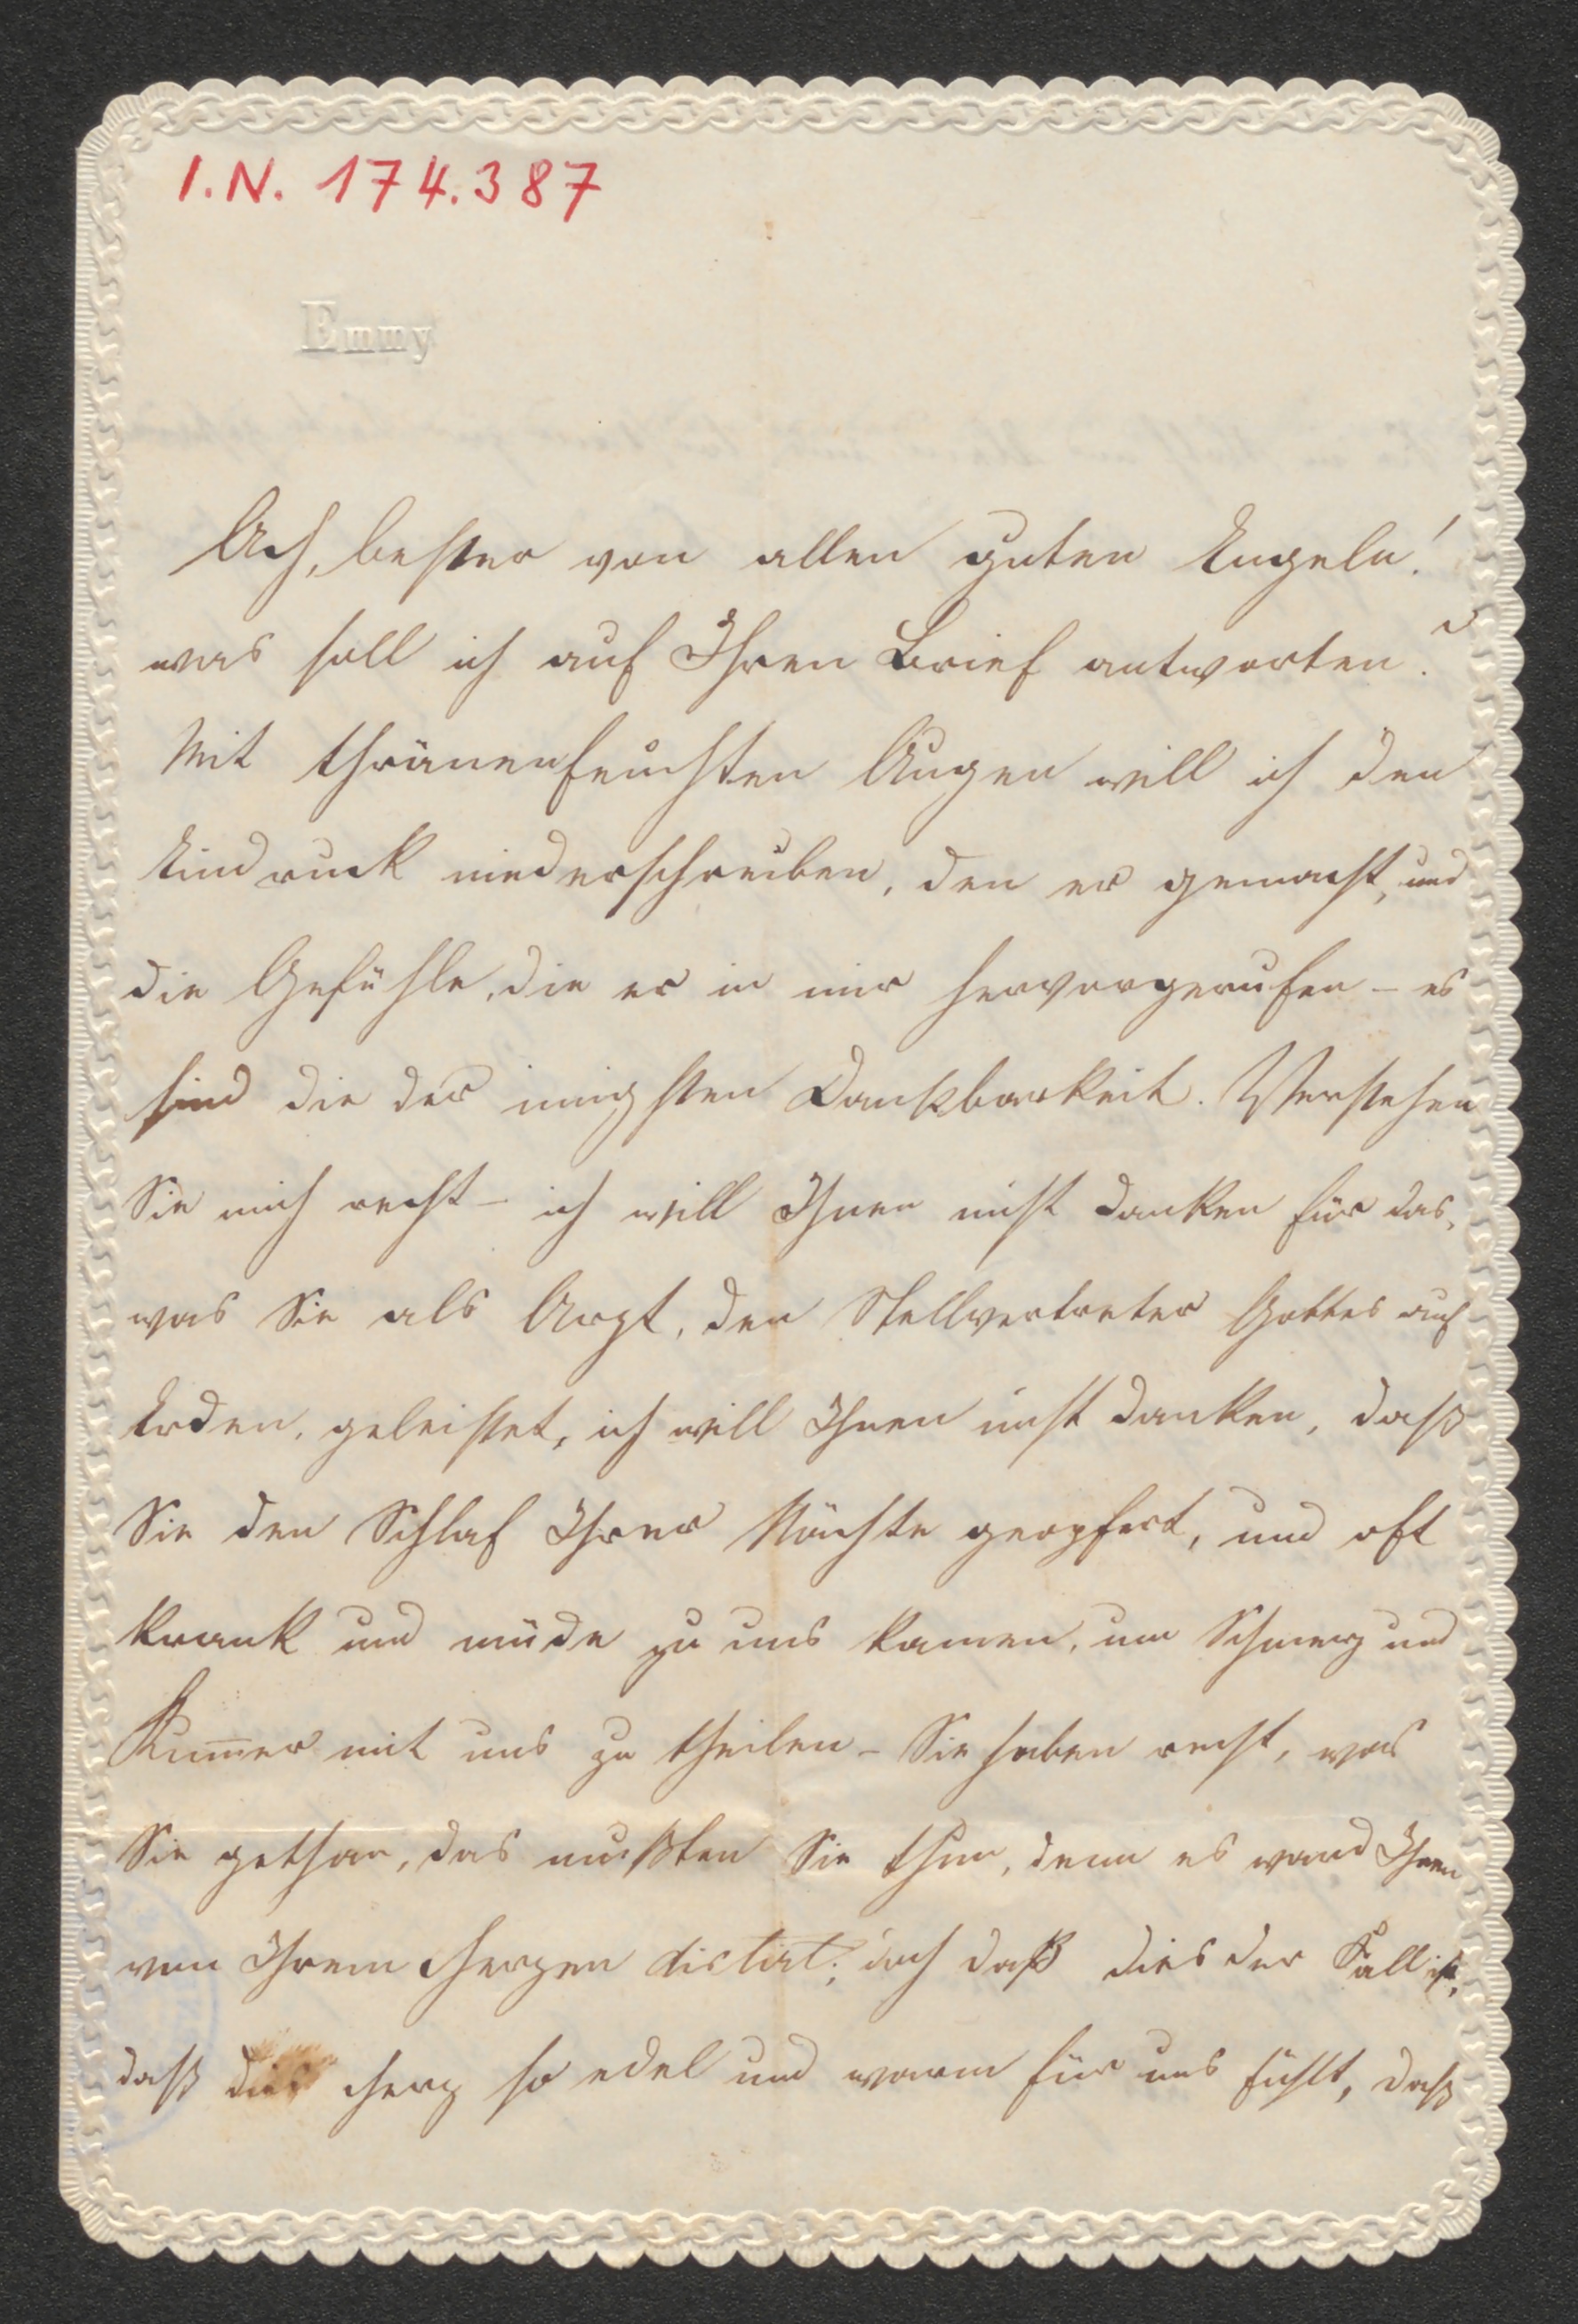 I.N. 174.387
Emmy
Ach, bester von allen guten Engeln!
was soll ich auf Ihren Brief antworten?
Mit thränenfeuchten Augen will ich den
Eindruck niederschreiben, den er gemacht, und
die Gefühle, die er in mir hervorgerufen – es
sind die der innigsten Dankbarkeit. Verstehen
Sie mich recht – ich will Ihnen nicht danken für das,
was Sie als Arzt, der Stellvertreter Gottes auf
Erden, geleistet, ich will Ihnen nicht danken, daß
Sie den Schlaf Ihrer Nächte geopfert, und oft
krank und müde zu uns kamen, um Schmerz und
Kum̄er mit uns zu theilen – Sie haben recht, was
Sie gethan, das mußten Sie thun, denn es ward Ihnen
von Ihrem Herzen dictirt; doch daß dies der Fall ist,
daß dies Herz so edel und warm für uns fühlt, daß